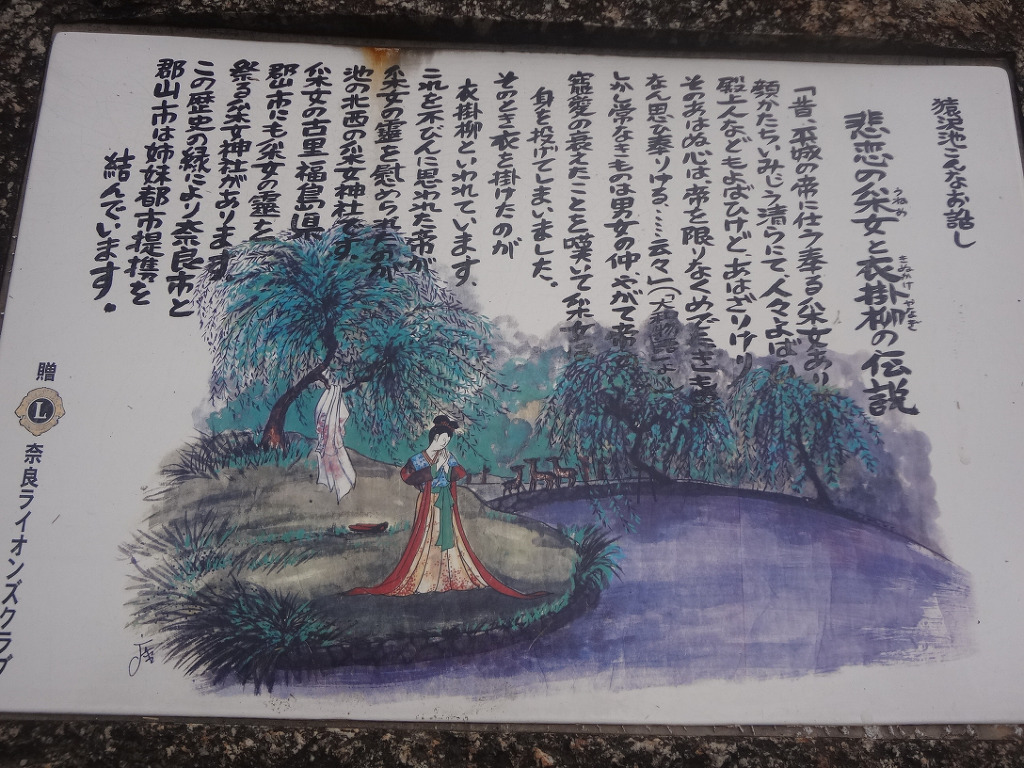 猿沢池こんなお話し
悲恋の采女と衣掛柳の伝説
うねめ
きぬかけ
やなぎ
「昔、平城の帝に仕う奉る采女あり
顔かたちいみじう清らにて、人々よば
殿上人などもよばひけど、あはざりけり
そのあはぬ心は、帝を限りなくめでたき
なむ思ひ奉りける……云々」(大和物語
しか常なきものは男女の仲、やがて帝
寵愛の衰えたことを嘆いて采女
身を投げてしまいました。
そのとき衣を掛けたのが
衣掛柳といわれています。
これを不びんに思われた帝が
采女の霊を慰めら
池の北西の采女神社です。
采女の古里福島県
郡山市にも采女の霊を
祭る采女神社があります
この歴史の縁により奈良市と
郡山市は姉妹都市提携を
結んでいます。
贈
L
奈良ライオンズクラブ